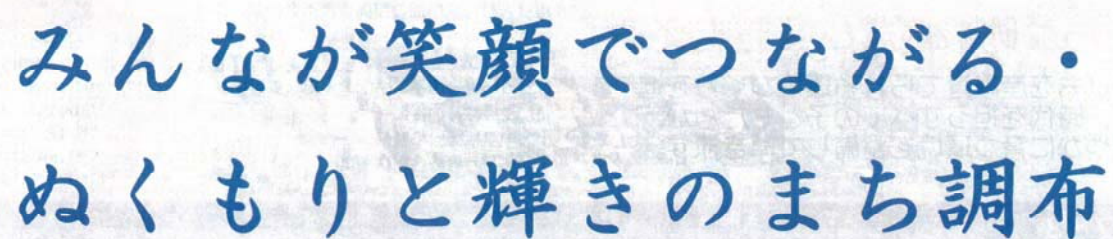 みんなが笑顔でつながる・
ぬくもりと輝きのまち調布